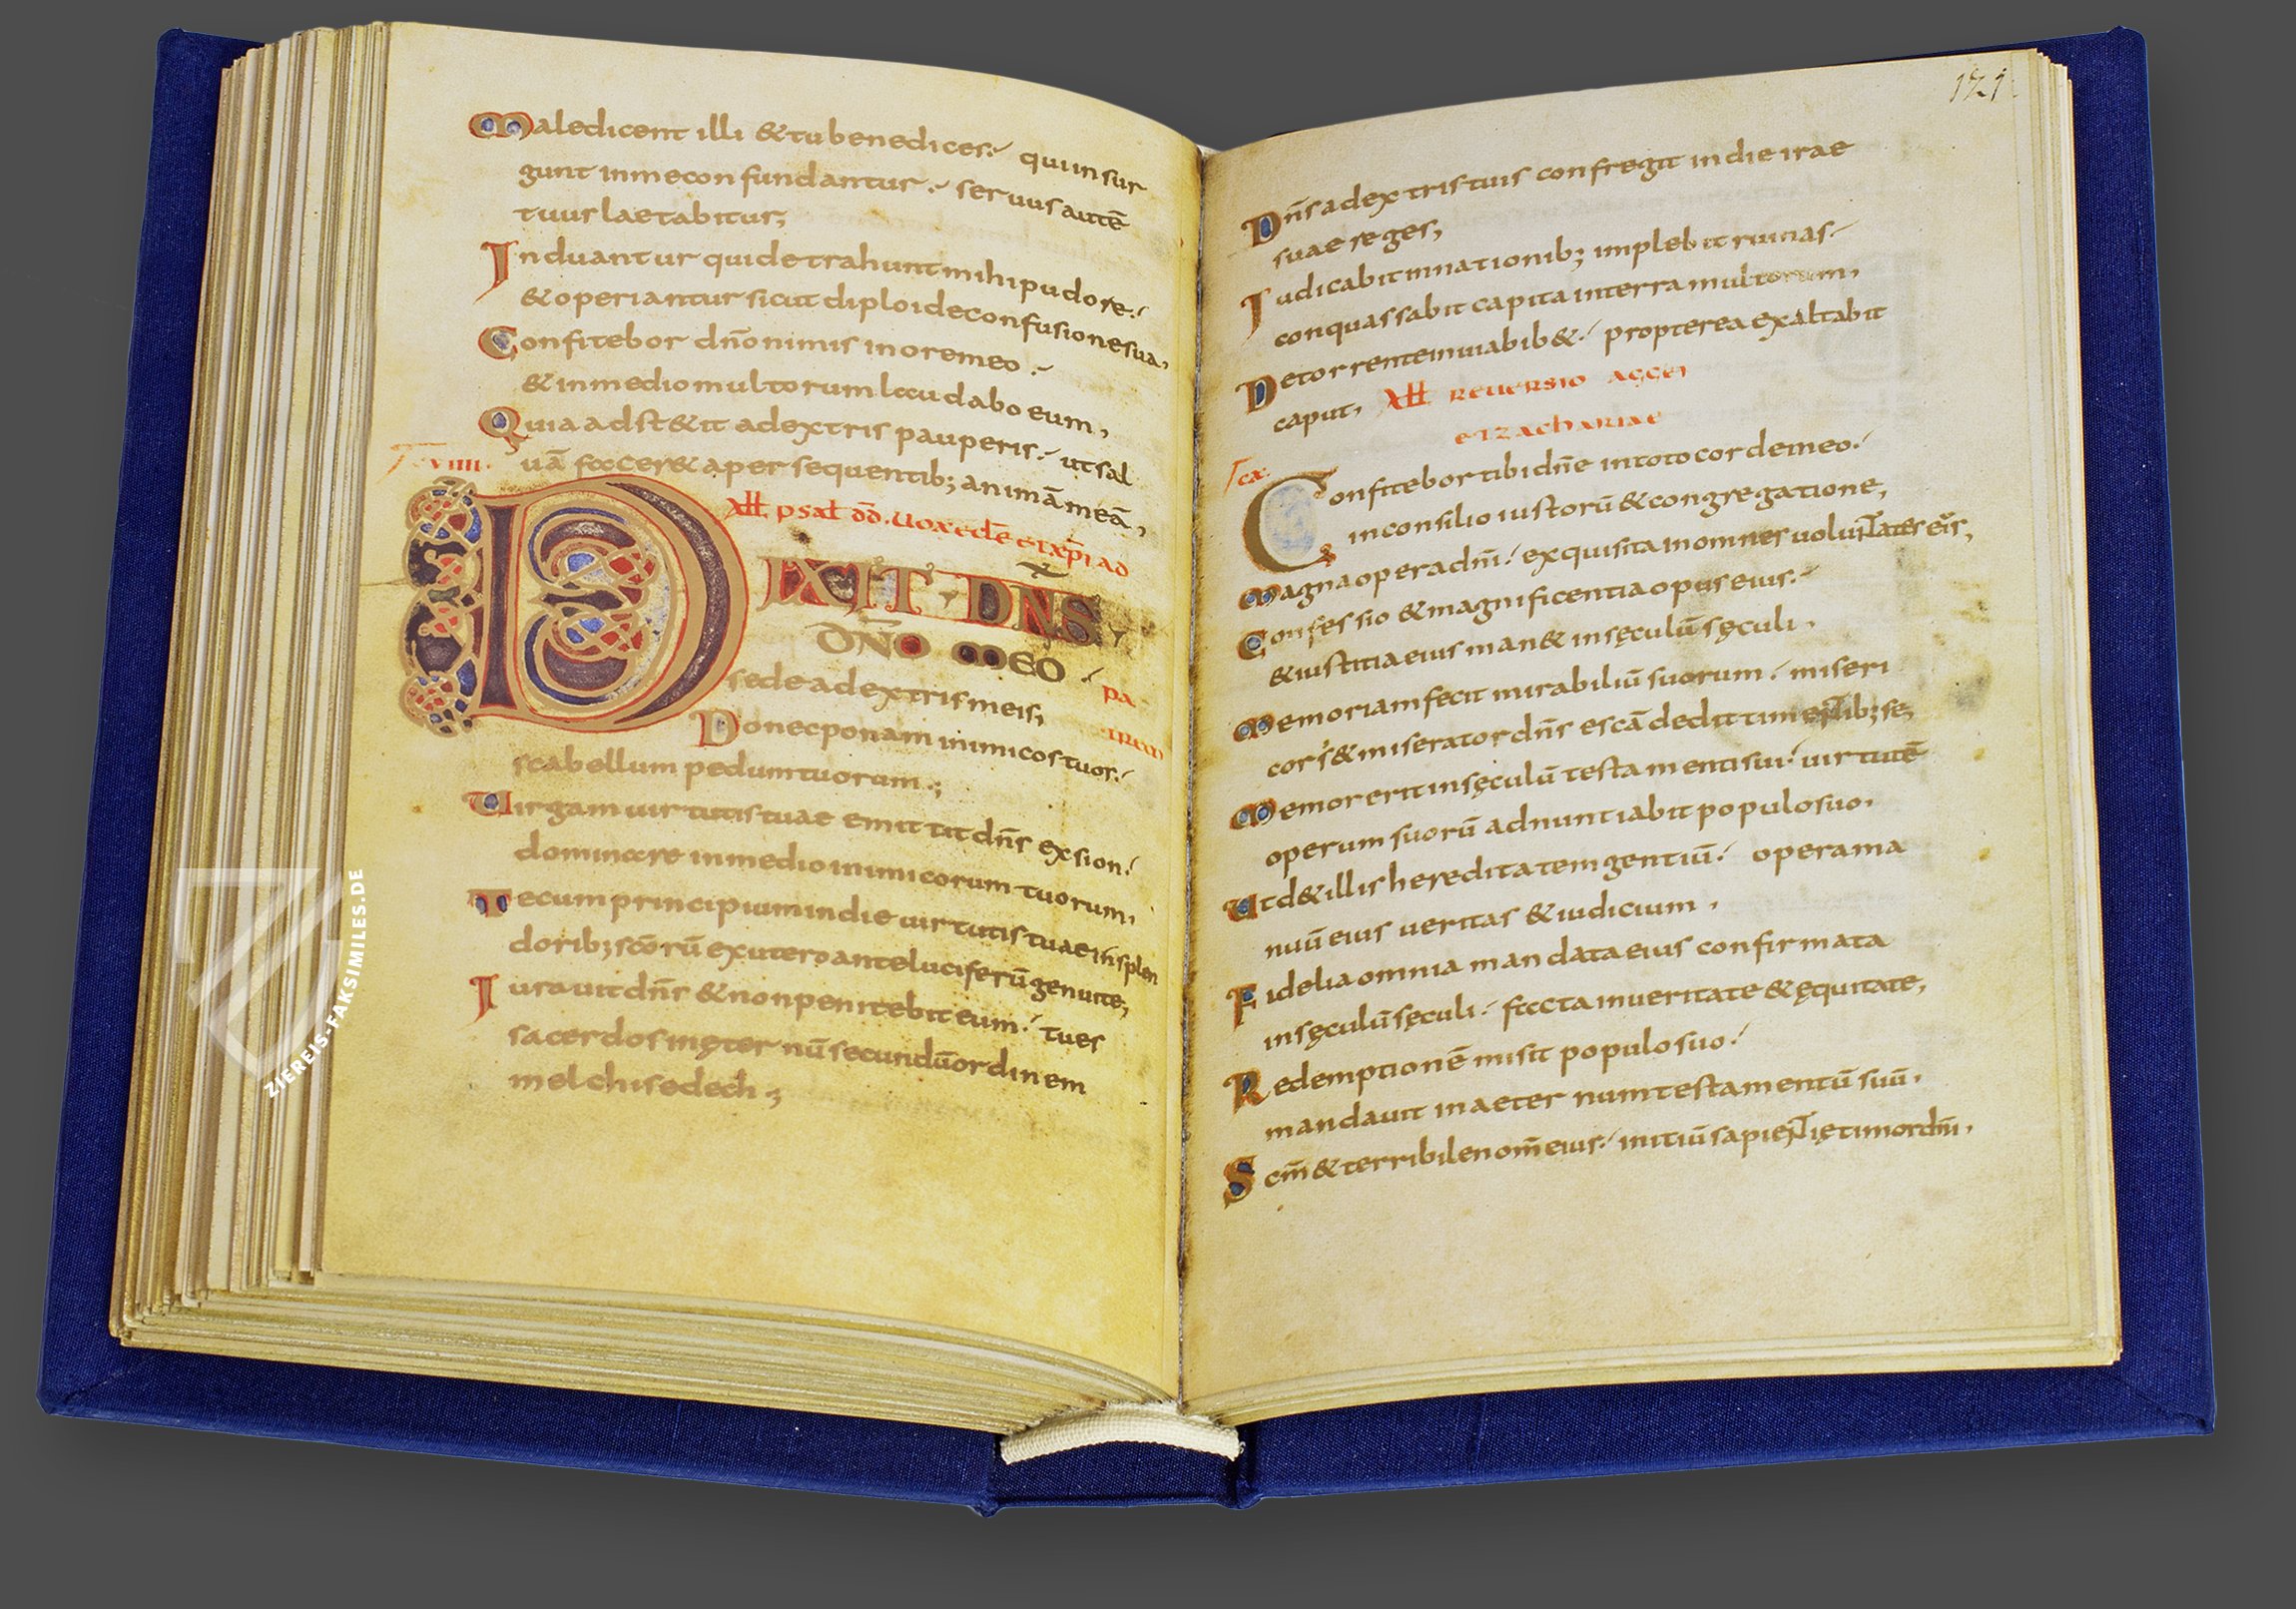 Maledicent illi & tu benedices quiinsur
gunt inmeconfundantur seruus autē
tuus laetabitur;
Induantur quidetrahuntmihipudore
& operiantur sicut diploideconfusionesua,
Confitebor dn̄o nimis inoremeo
& inmedio multorum laudabo eum,
Quia adst&it adextris pauperis ut sal
uā facer& apersequentib; animāmeā,
XIII. psal dd. uox ecłe & xp̄i ad
DIXIT DN̄S
DN̄O MEO
pa
sede adextris meis,
trem
Donec ponam inimicos tuos
scabellum pedum tuorum;
Uirgam uirtutis tuae emittit dn̄s exsion
dominare inmedio inimicorum tuorum,
Tecum principium indie uirtutis tuae insplen
dorib; scōrū exutero anteluciferū genuite,
Iurauit dn̄s & non penitebit eum tu es
sacerdos inęternū secundū ordinem
melchisedech;
ZIEREIS-FAKSIMILES.DE
121
Dn̄s adextris tuis confregit indie irae
suae reges,
Iudicabit innationib; implebit ruinas
conquassabit capita interra multorum,
Detorrente inuia bib& propterea exaltabit
caput, XIII REUERSIO AGGEI
ET ZACHARIAE
cx
Confitebor tibi dn̄e intoto corde meo
inconsilio iustorū & congregatione,
Magna opera dn̄i exquisita inomnes uoluntates eius,
Confessio & magnificentia opus eius
& iustitia eius man& insęculūsęculi,
Memoriam fecit mirabiliū suorum miseri
cors & miserator dn̄s escā dedit timentib; se,
Memor erit insęculū testamenti sui uirtutē
operum suorū adnuntiabit populo suo,
Ut d& illis hereditatem gentiū opera ma
nuū eius ueritas & iudicium,
Fidelia omnia mandata eius confirmata
insęculūsęculi facta inueritate & ęquitate,
Redemptionē misit populo suo
mandauit inaeternum testamentū suū,
Scm̄ & terribile nom̄ eius initiū sapientię timor dn̄i,